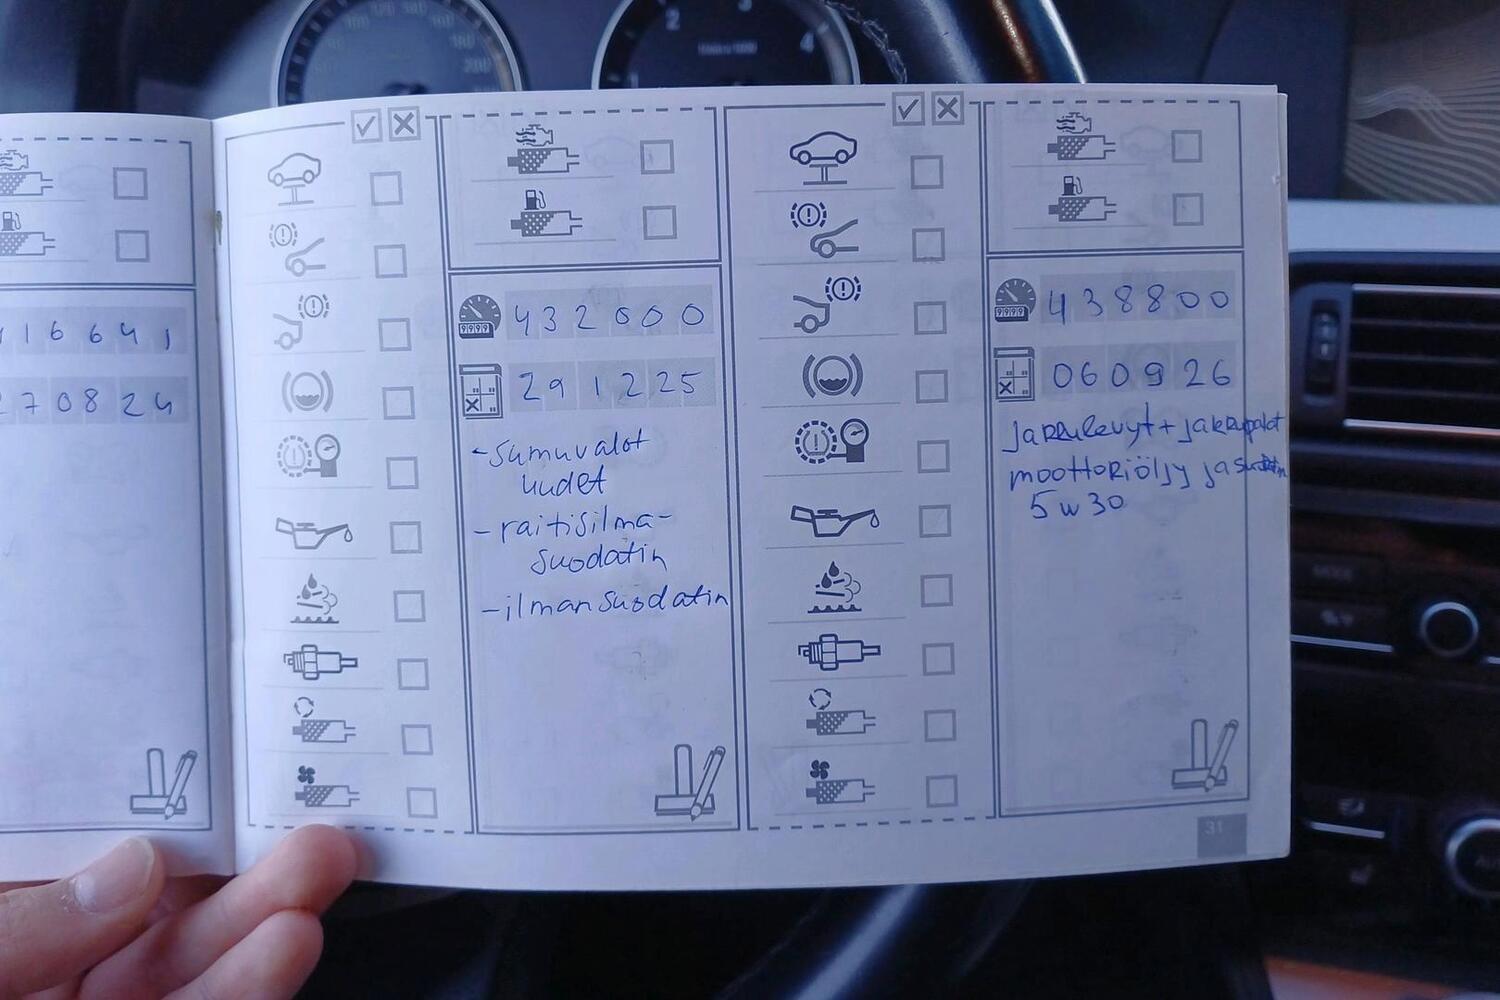 2
3
4
1
180
200
16641
270824
432000
291225
-sumuvalot
uudet
-raitisilma-
suodatin
-ilmansuodatin
438800
060926
jarrulevyt+jarrupalat
moottoriöljy ja suodatin
5w30
31
MODE